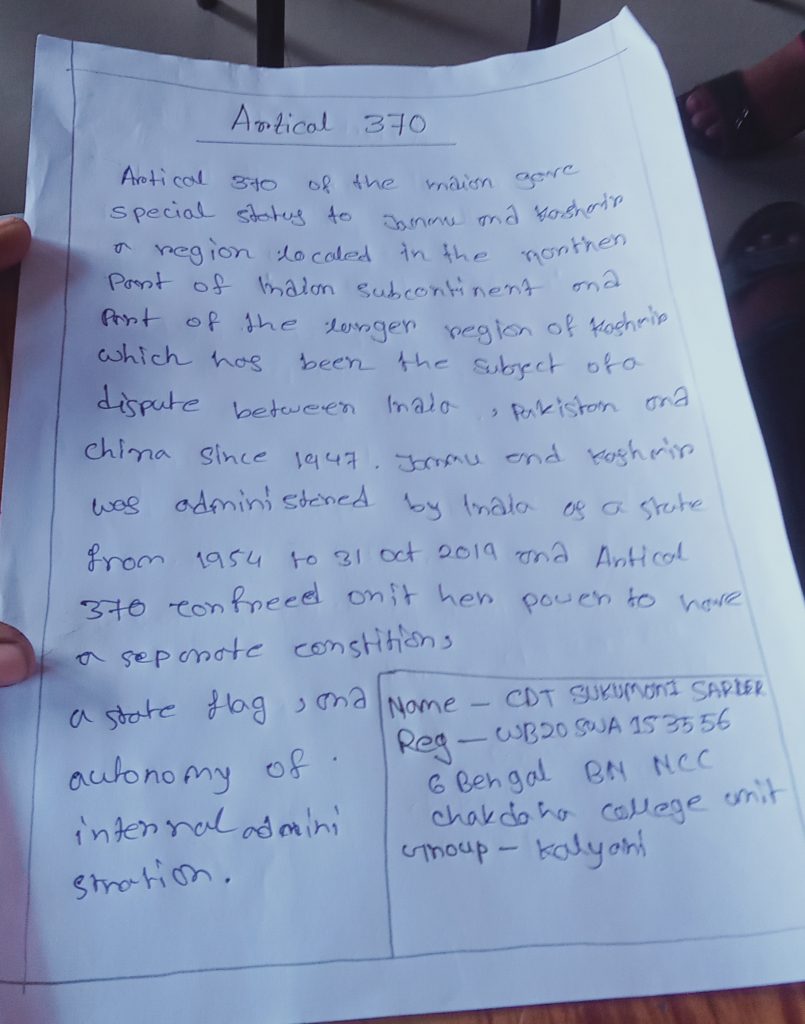 Artical 370
Artical 370 of the indion gave
special status to Jammu and Kashmir
a region located in the northen
Part of Indian subcontinent and
Part of the larger region of Kashmir
which has been the subject of a
dispute between India , Pakistan and
china since 1947. Jammu and Kashmir
was administered by India as a state
from 1954 to 31 oct 2019 and Artical
370 confreed on it her power to have
a seperate constitions
a state flag , and
autonomy of
internal admini
stration.
Name - CDT SUKUMONI SARDER
Reg - WB20SWA153556
6 Bengal BN NCC
chakdaha college unit
Group - Kalyani